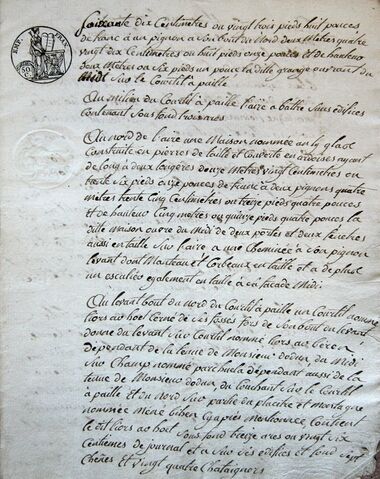 Soixante dix Centimètres ou vingt trois pieds huit pouces
de franc a un pignon a Son bout du Nord deux Metres quatre
vingt dix Centimetres ou huit pieds onze pouces et de hauteur
deux Metres ou Six pieds un pouce la dite grange ouvrant du
Midi Sur le Courtil à paille
Au milieu du Courtil à paille l'aire à battre Sans edifices
Contenant Sous fond trois ares
Au Nord de l'aire une Maison nommée an ty glas
Construite en pierres de taille et Couverte en ardoises ayant
de long à deux longères douze Metres vingt Centimetres ou
trente six pieds onze pouces de franc à deux pignons quatre
metres trente Cinq Centimetres ou treize pieds quatre pouces
et de hauteur Cinq metres ou quinze pieds quatre pouces la
dite maison ouvre du Midi de deux portes et deux fenêtres
aussi en taille Sur l'aire a une Cheminée à Son pignon
levant dont Manteau et Corbeaux en taille et a de plus
un escalier également en taille à Sa façade Midi
Au levant bout du nord du Courtil à paille un Courtil nommé
liors ar hoet Cerné de Ses fosses fors de Son bout du levant
donne du levant Sur Courtil nommé liors
dépendant de la tenue de Monsieur du Midi
Sur Champ nommé dépendant aussi de la
tenue de Monsieur du Couchant Sur le Courtil
à paille et du Nord Sur partie du placitre et montagne
nommée Méné Contient
le dit liors ar hoet Sous fond treize ares ou vingt Six
Centièmes de journal et a Sur Ses édifices et fond Sept
Chênes et vingt quatre Chataigners